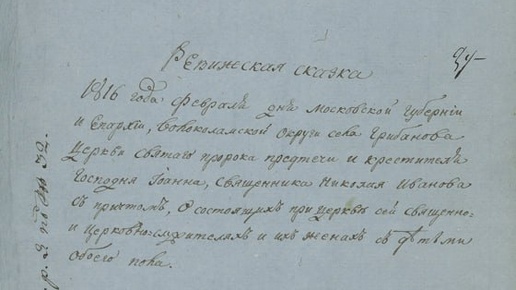 Ревижеская сказка
1816 года февраля дня Московской Губернiи
и Епархiи, Волоколамской Округи села Грибанова
Церкви Святаго пророка предтечи и крестителя
Господня Iоанна, священника Николая Иванова
съ причтомъ, о состоящихъ при церквѣ сей священно-
и Церковно-служителяхъ и ихъ женахъ съ дѣтьми
обоего пола.